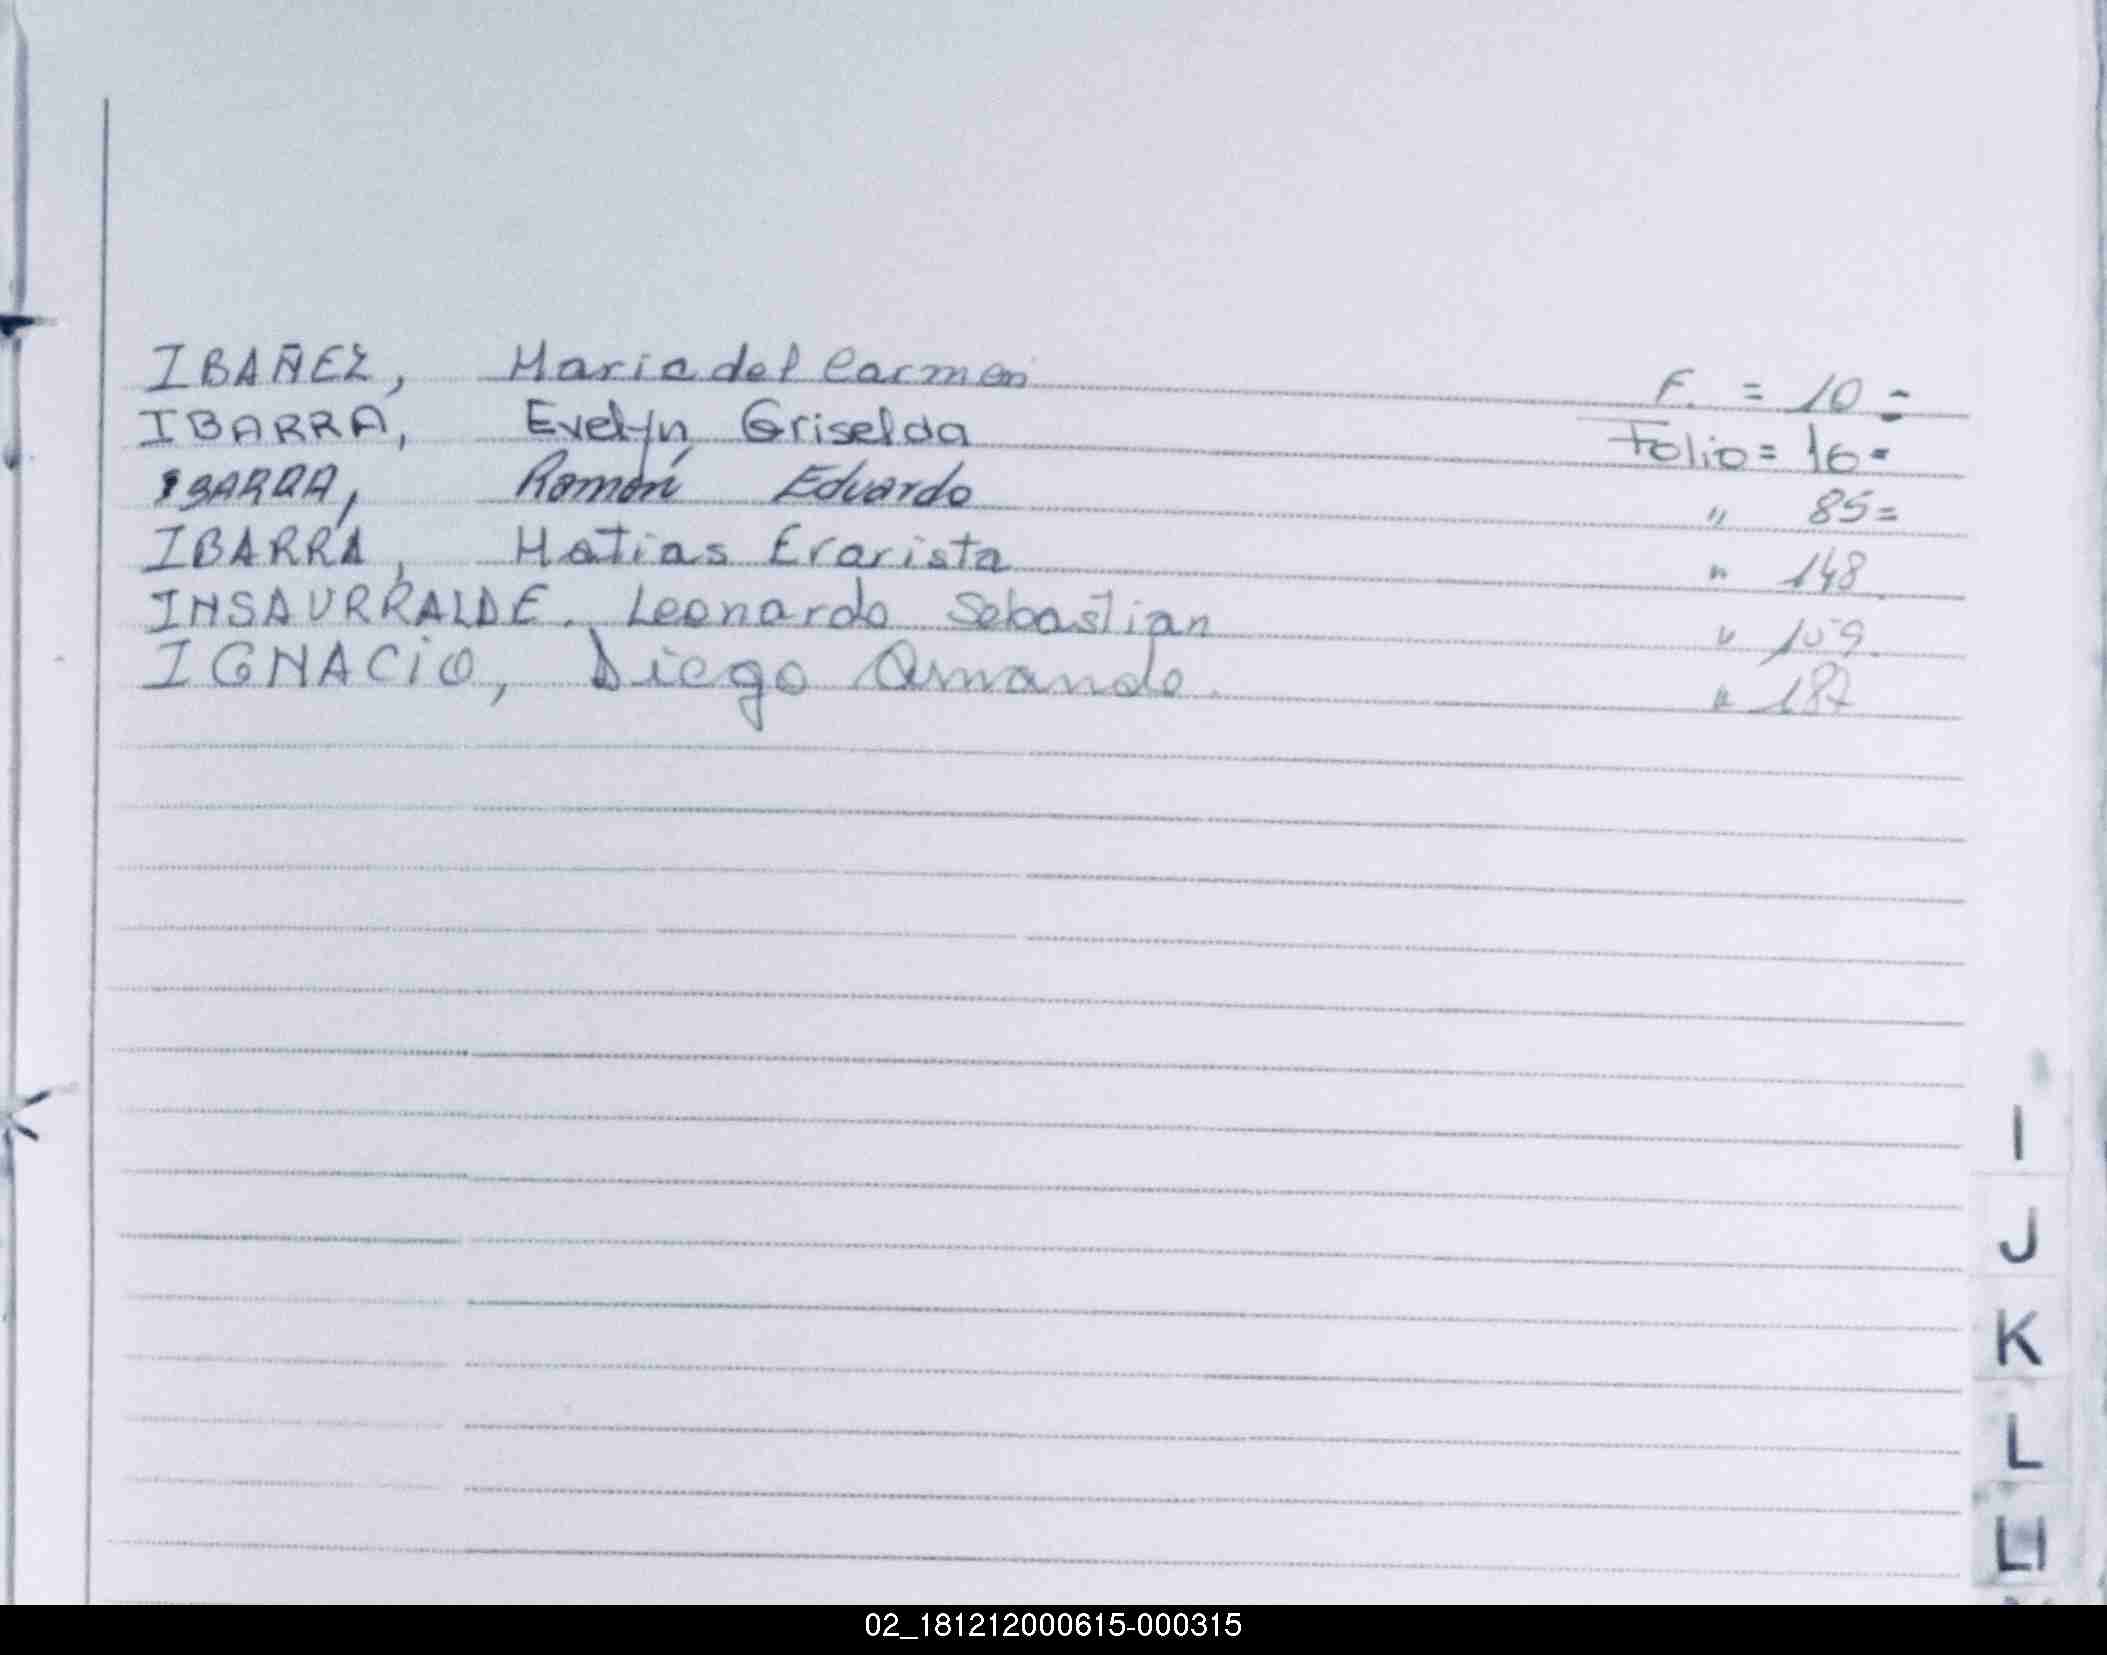 IBAÑEZ, Maria del Carmen F. = 10 =
IBARRA, Evelyn Griselda Folio = 16 =
IBARRA, Ramón Eduardo " 85 =
IBARRA, Matias Erarista " 148
INSAURRALDE. Leonardo Sebastian " 159.
IGNACIO, Diego Armando. " 187
I
J
K
L
Ll
02_181212000615-000315